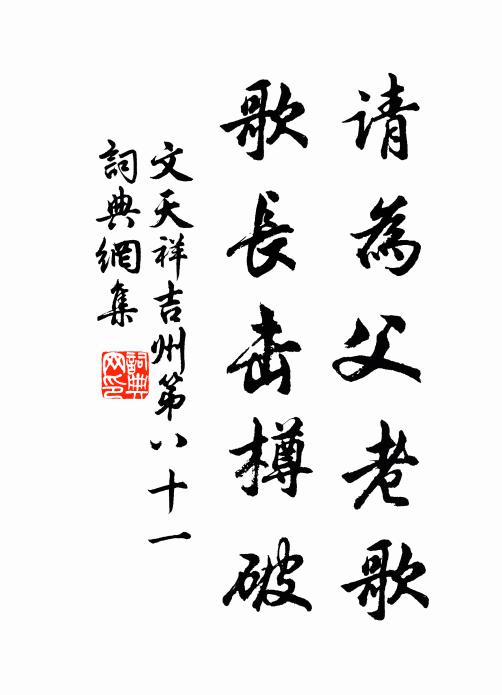 请為父老歌
歌長击樽破
文天祥吉州第八十一
詞典網集
詞典網印